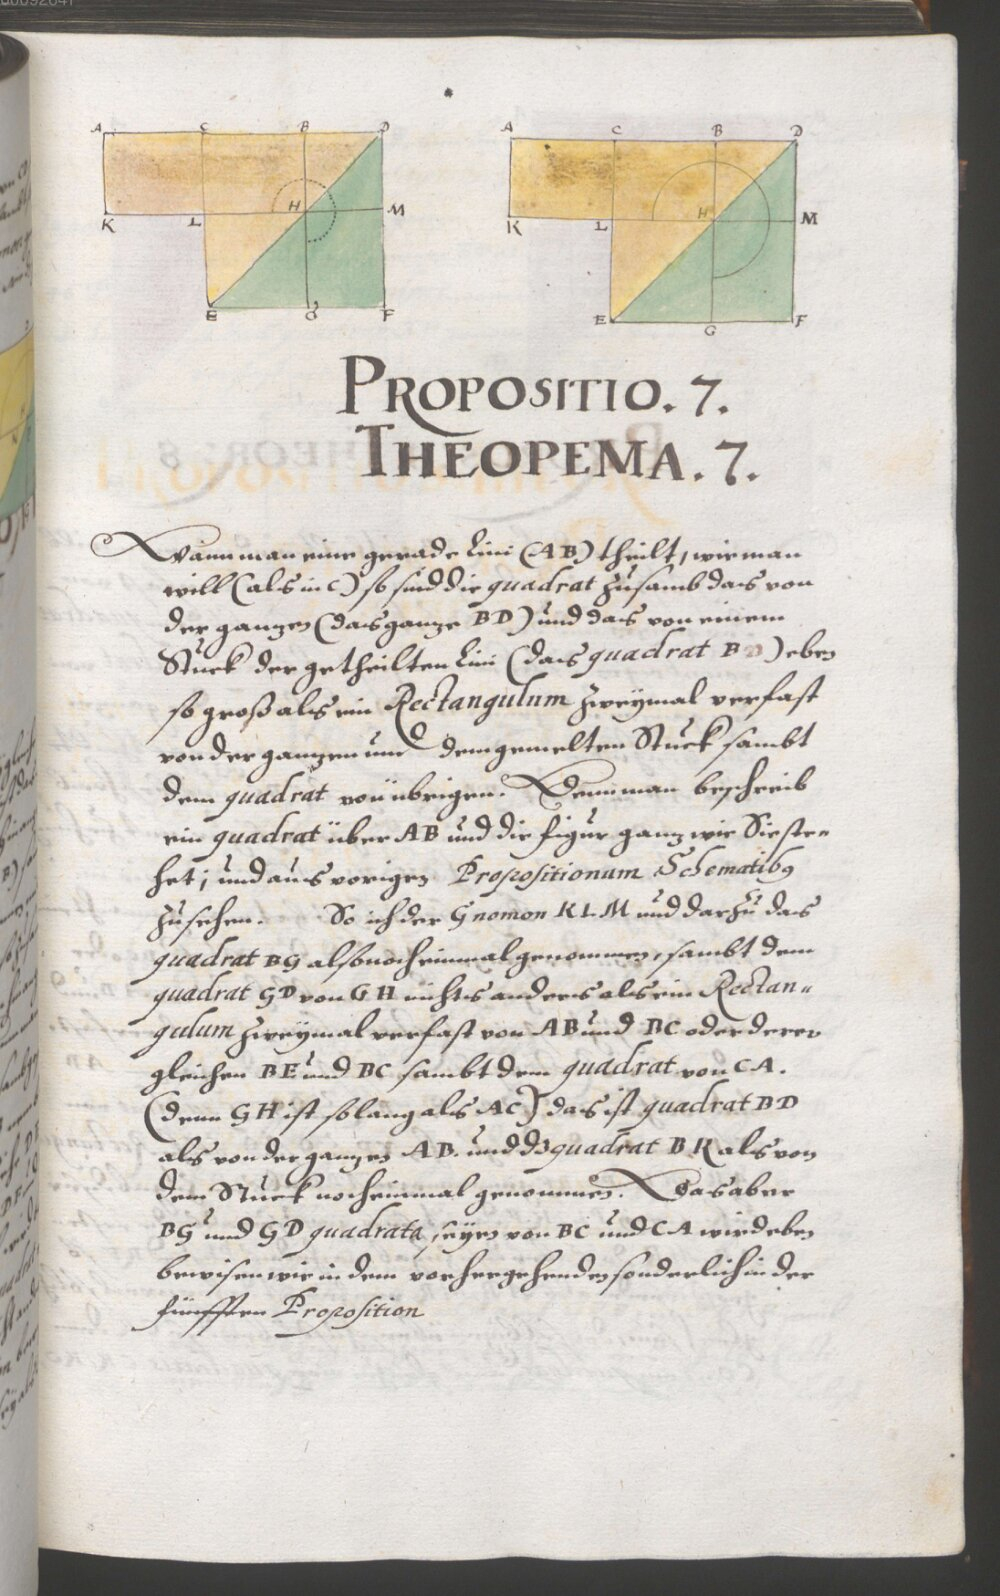 A C B D
K L H M
E G F
A C B D
K L H M
E G F
PROPOSITIO. 7.
THEOPEMA. 7.
Wann man eine gerade Lini (AB) theilt, wie man
will (als in C) so sind die quadrat zusamb das von
der gantzen (das gantze BD) und das von einem
Stuck der getheilten Lini (das quadrat B) eben
so groß als ein Rectangulum zweymal verfast
von der gantzen und dem gemelten Stuck sambt
dem quadrat von übrigen. Denn man beschreib
ein quadrat über AB und die figur gantz wie Sie ste=
het, und aus vorigen Propositionum Schematibg
zusehen. So ich der Gnomon KLM und darzu das
quadrat BG also noch einmal genommen, sambt dem
quadrat GD von GH nichts anders als ein Rectan=
gulum zweymal verfast von AB und BC oder deren
gleichen BE und BC sambt dem quadrat von CA.
(denn GH ist so lang als AC) das ist quadrat BD
als von der gantzen AB. und dz quadrat BK als von
dem Stuck noch einmal genommen. Das aber
BG und GD quadrata seyen von BC und CA wird eben
bewisen wie in dem vorhergehenden sonderlich in der
fünfften Proposition